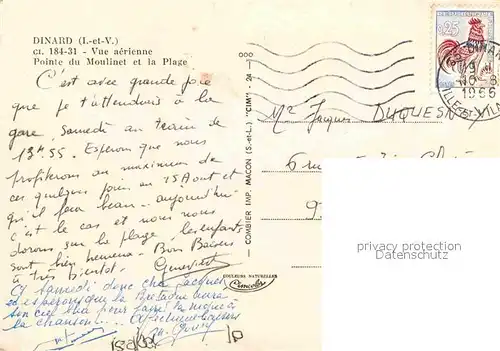 DINARD (I.-et-V.)
ct. 184-31 - Vue aérienne
Pointe du Moulinet et la Plage
C'est avec grande joie
que je t'attendrais à la
gare, Samedi au train de
13H55. Esperons que nous
profiterons au maximum de
ces quelques jours au 15 Aout et
qu'il fera beau - aujourd'hui
c'est le cas et nous nous
dorons sur la plage. les enfants
sont bien heureux - Bons Baisers
à très bientot. Geneviève
A samedi donc cher Jacques
et espérons que la Bretagne aura
son ciel bleu pour faire la nique à
la chanson...
COMBIER IMP. MACON (S.-et-L.) "CIM" - 24
COULEURS NATURELLES
Cimcolor
25
DINARD
19
-8
1966
ILLE-ET-VIL
Mr Jacques DUQUESN
6 rue
9
privacy protection
Datenschutz